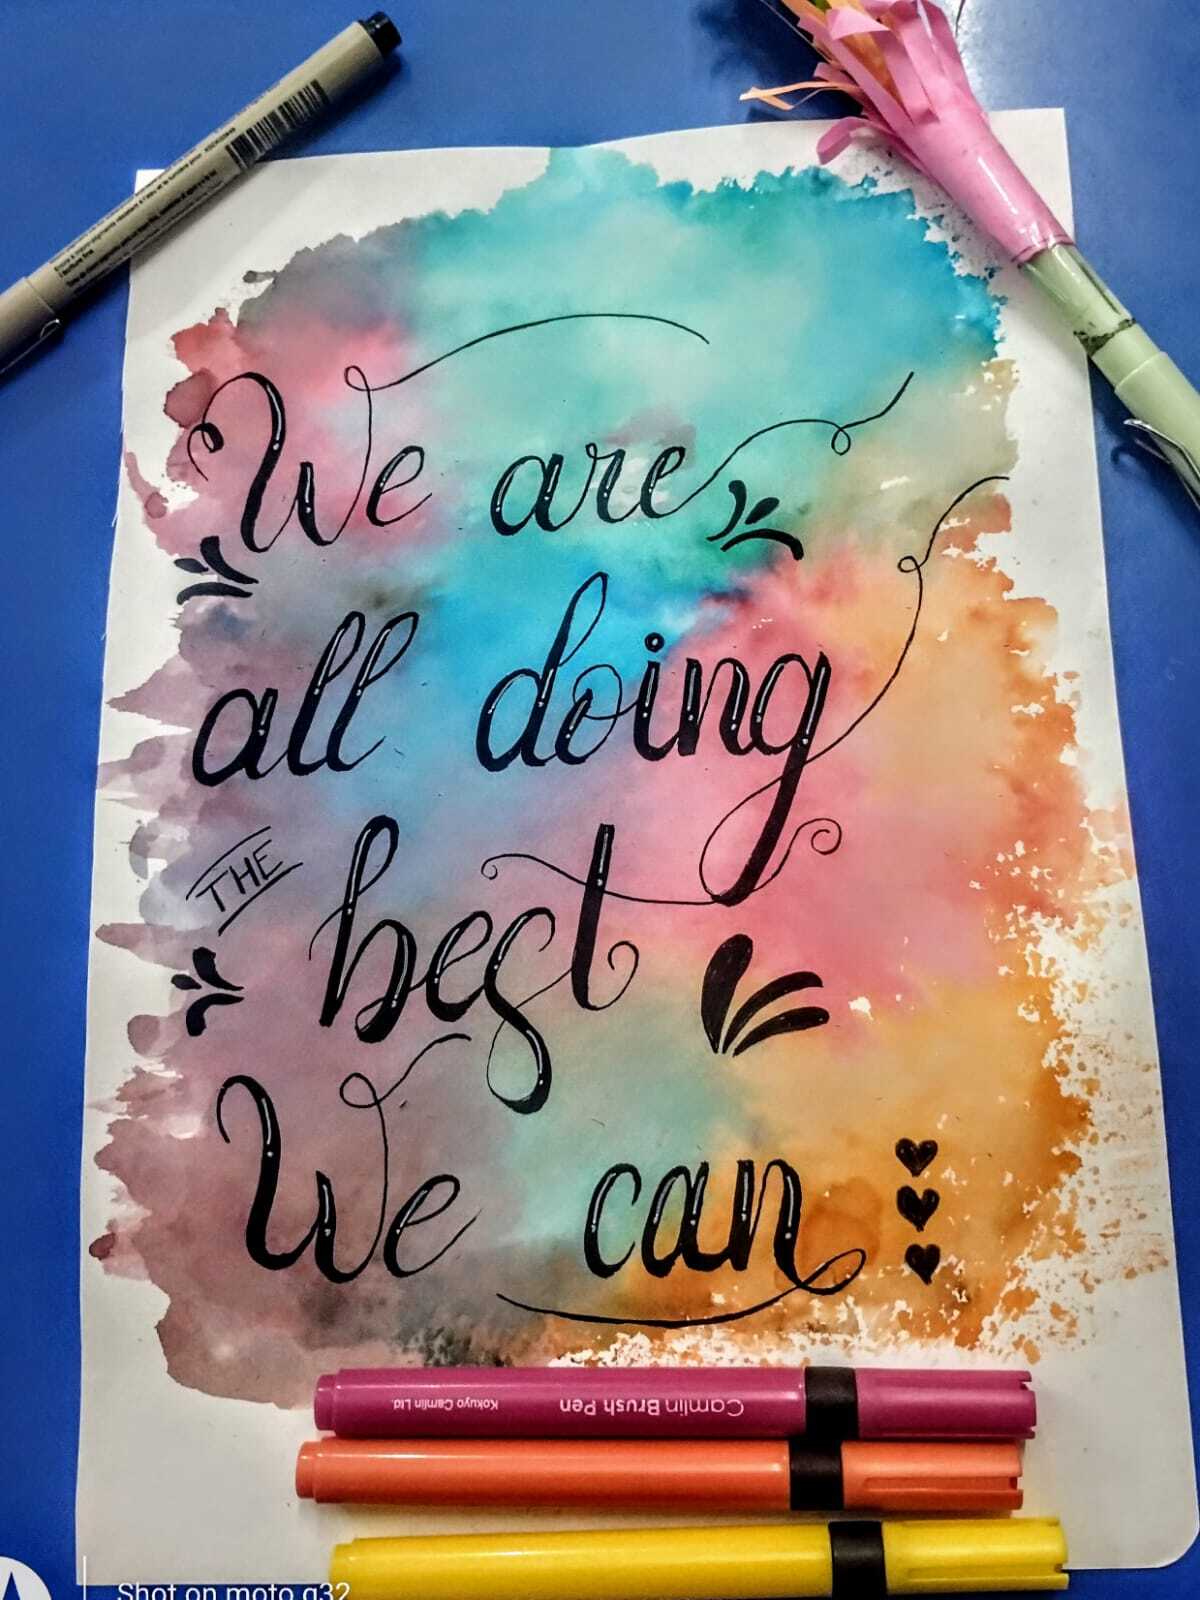 We are
all doing
THE
best
We can
Camlin Brush Pen
Kokuyo Camlin Ltd.
Shot on moto g32